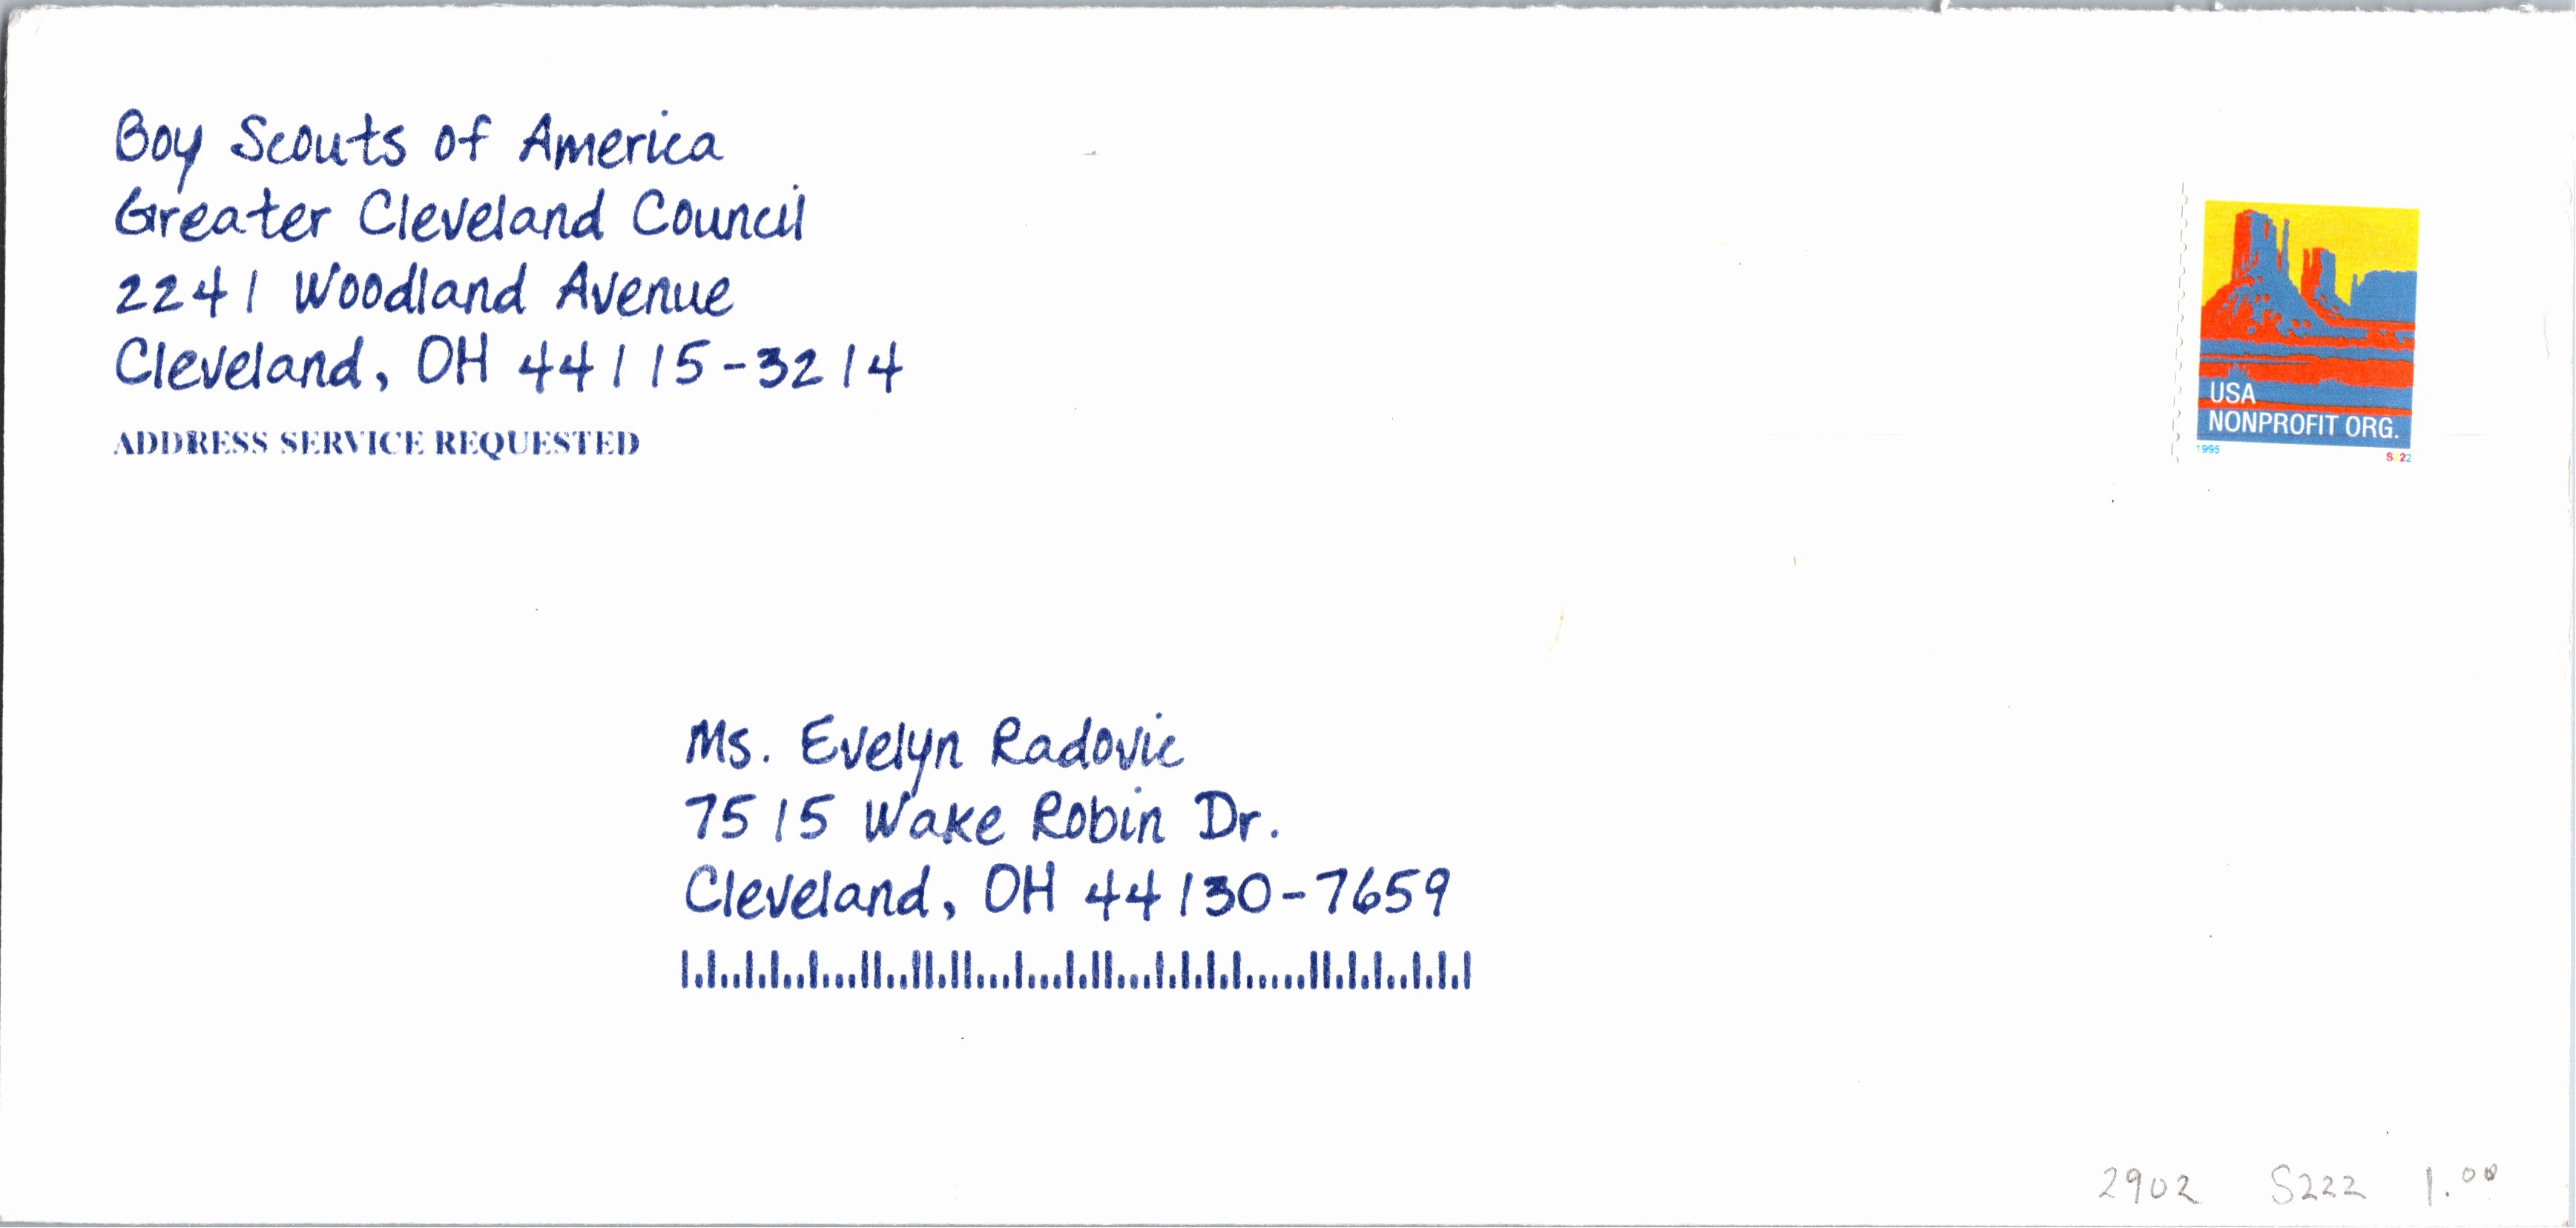 Boy Scouts of America
Greater Cleveland Council
2241 Woodland Avenue
Cleveland, OH 44115-3214
ADDRESS SERVICE REQUESTED
USA
NONPROFIT ORG.
1995 S222
Ms. Evelyn Radovic
7515 Wake Robin Dr.
Cleveland, OH 44130-7659
2902 S222 1.00